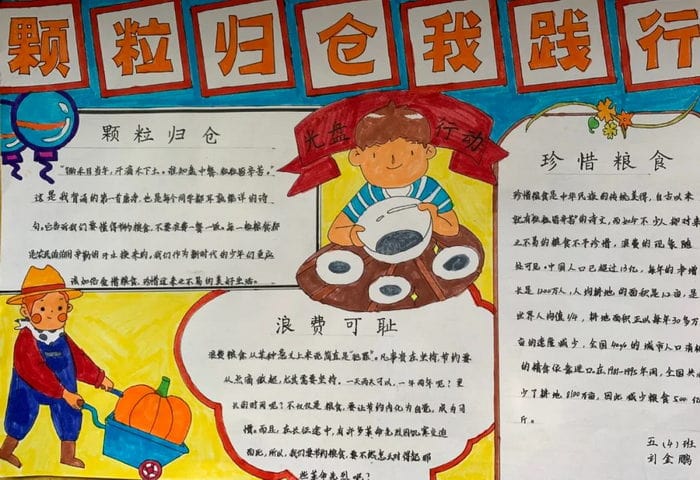 颗粒归仓我践行
光盘行动
颗粒归仓
"锄禾日当午,汗滴禾下土。谁知盘中餐,粒粒皆辛苦。"
这是我背诵的第一首唐诗,也是每个同学都耳熟能详的诗
句。它告诉我们要懂得节约粮食,不要浪费一餐一饭。每一粒粮食都
是农民伯伯用辛勤的汗水换来的,我们作为新时代的少年们更应
该加倍爱惜粮食,珍惜这来之不易的美好生活。
浪费可耻
浪费粮食从某种意义上来说简直是"犯罪"。凡事贵在坚持,节约要
从点滴做起,尤其需要坚持,一天两天可以,一年两年呢?更
长的时间呢?不仅仅是粮食,要让节约内化为自觉,成为习
惯。而且,在长征途中,有许多革命先烈因饥寒
因此,所以,我们要节约粮食,要不然怎么对得起那
些革命先烈呢?
珍惜粮食
珍惜粮食是中华民族的传统美德,自古以来
就有粒粒皆辛苦"的诗文,而如今不少人却对来
之不易的粮食不乎珍惜,浪费的现象随
处可见。中国人口已超过13亿,每年的幸增
长是1200万人,人均耕地的面积是1.2亩,是
世界人均值1/4,耕地面积正以每年30多万
亩的速度减少,全国40%的城市人口消
的粮食依靠进口在1981-1995年间,全国共
少了耕地8100万亩,因此减少粮食500亿
斤。
五(4)班
刘金鹏